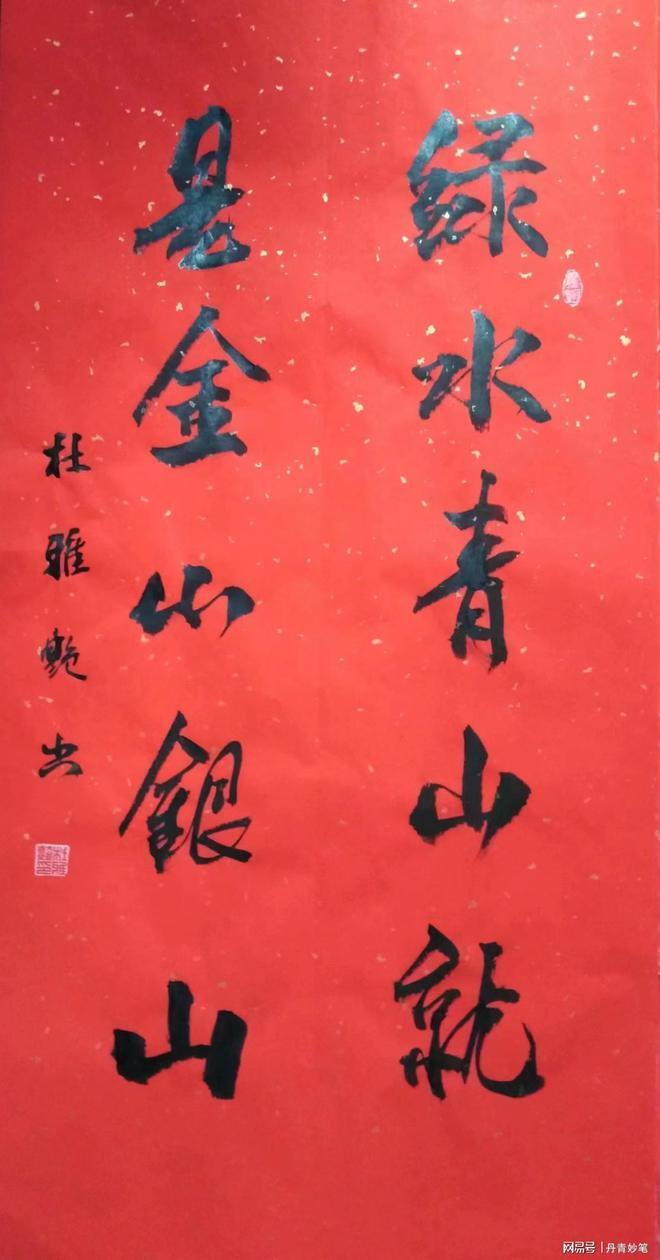 綠水青山就
是金山銀山
杜雅艷书
网易号 | 丹青妙笔